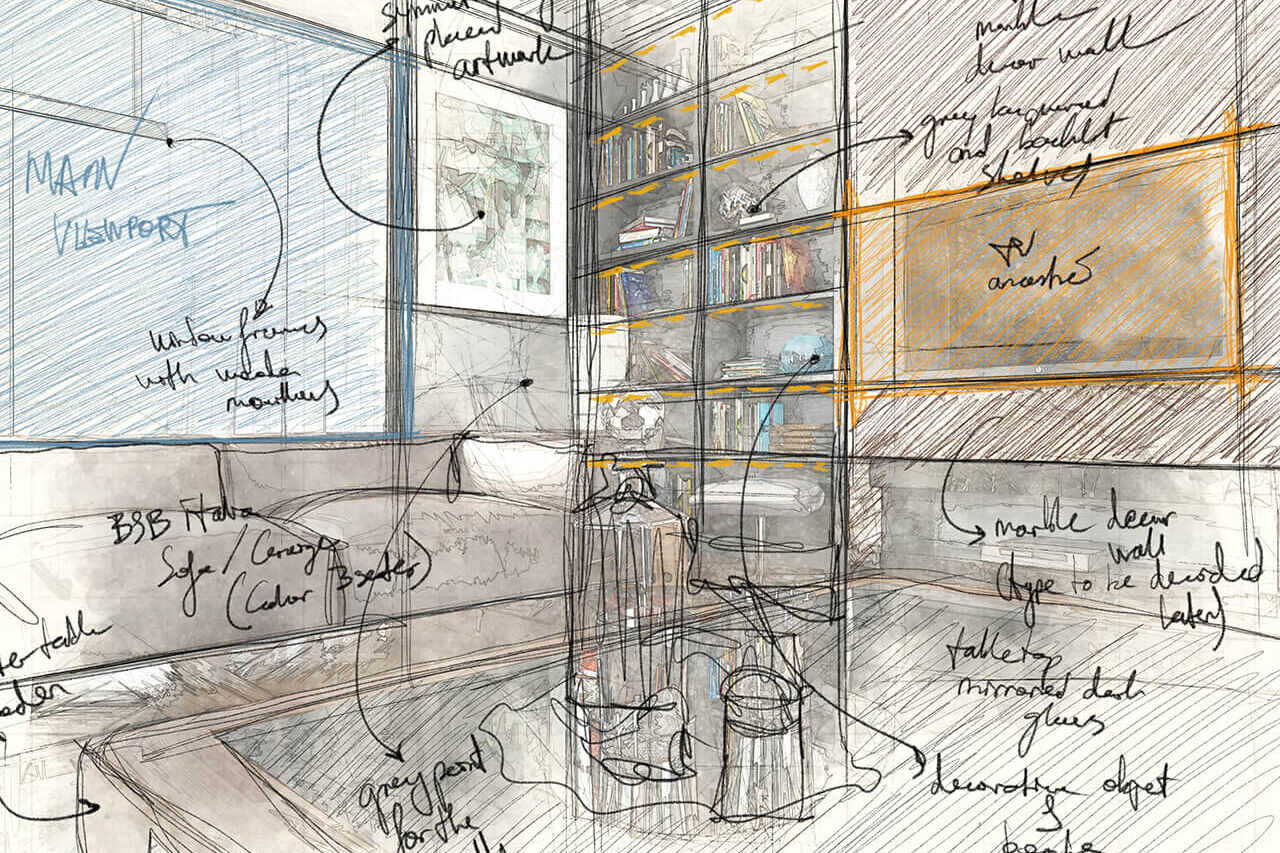 placed
artwork
marble
decor wall
grey lacquered
and backlit
shelves
MAIN
VIEWPORT
TV
window frames
with wooden
B&B Italia
Sofa /
(Color 3 seater)
marble decor
wall
(type to be decided
later)
table
tabletop
mirrored dark
glass
grey paint
for the
decorative object
&
books